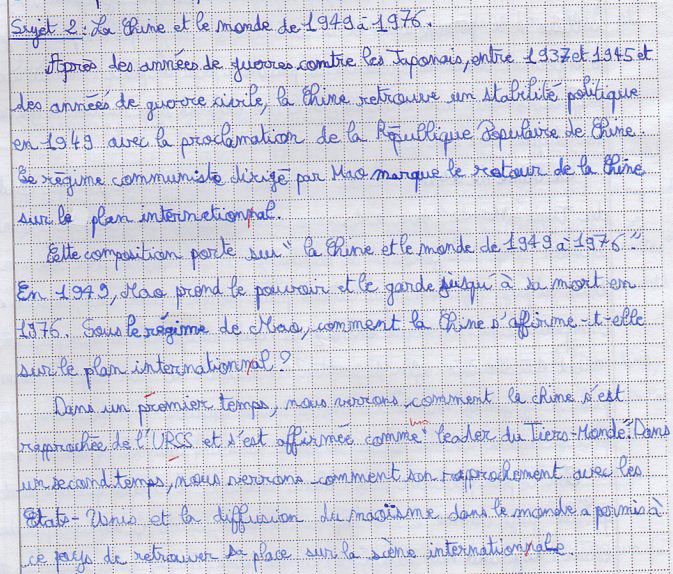 Sujet 2 : La Chine et le monde de 1949 à 1976.
Après des années de guerres contre les Japonais, entre 1937 et 1945 et
des années de guerre civile, la Chine retrouve un stabilité politique
en 1949 avec la proclamation de la République Populaire de Chine.
Le régime communiste dirigé par Mao marque le retour de la Chine
sur le plan internationnal.
Cette composition porte sur "la Chine et le monde de 1949 à 1976".
En 1949, Mao prend le pouvoir et le garde jusqu'à sa mort en
1976. Sous le régime de Mao, comment la Chine s'affirme-t-elle
sur le plan internationnal ?
Dans un premier temps, nous verrons comment la chine s'est
rapprochée de l'URSS et s'est affirmée comme "leader du Tiers-Monde". Dans
un second temps, nous verrons comment son rapprochement avec les
Etats-Unis et la diffusion du maoïsme dans le monde a permis à
ce pays de retrouver sa place sur la scène internationnale.